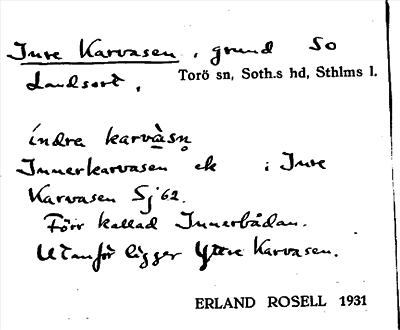 Inre Karvasen, grund SO
Landsort. Torö sn, Soth.s hd, Sthlms l.
índre karvàsṇ
Innerkarvasen ek ; Inre
Karvasen Sj 62.
Förr kallad Innerbådan.
Utanför ligger Yttre Karvasen.
ERLAND ROSELL 1931